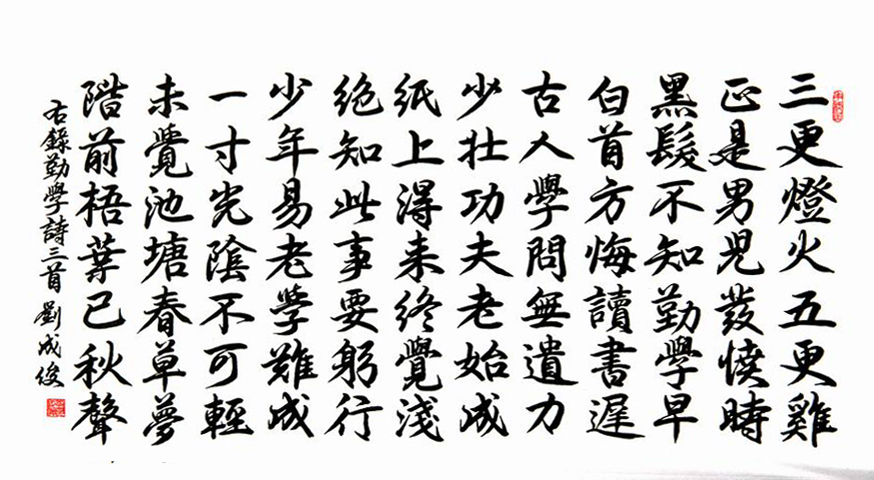 三更燈火五更雞
正是男兒發憤時
黑髮不知勤學早
白首方悔讀書遲
古人學問無遺力
少壯功夫老始成
紙上得来終覺淺
絕知此事要躬行
少年易老學難成
一寸光陰不可輕
未覺池塘春草夢
階前梧葉已秋聲
右錄勤學詩三首 劉成俊